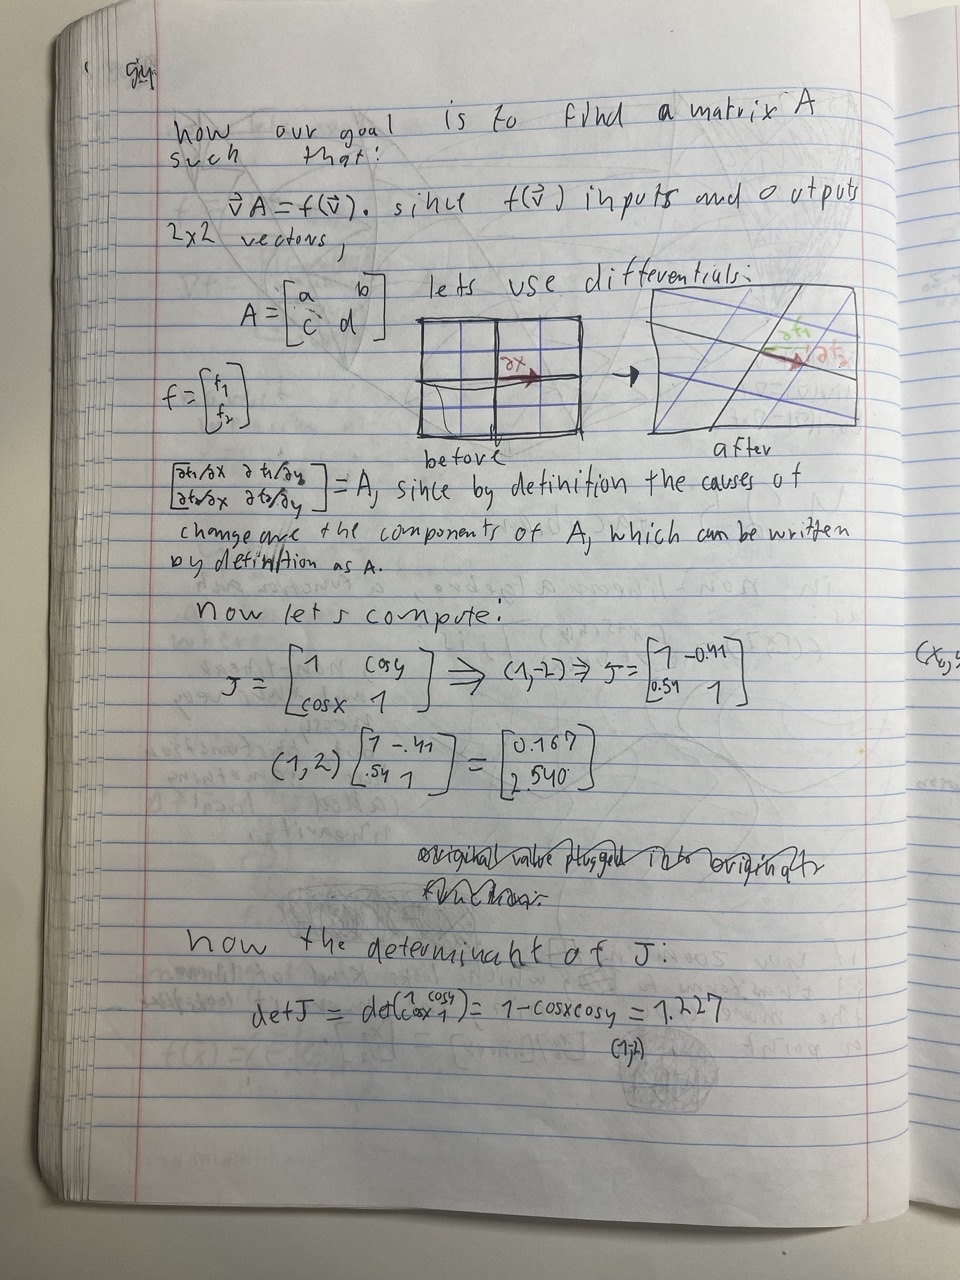 94
now our goal is to find a matrix A
such that:
v⃗ A = f(v⃗). since f(v⃗) inputs and outputs
2x2 vectors,
A = [a b; c d] lets use differentials:
f = [f₁; f₂]
∂x
∂f₁
∂f₂
before
after
[∂f₁/∂x ∂f₁/∂y; ∂f₂/∂x ∂f₂/∂y] = A, since by definition the causes of
change are the components of A, which can be written
by definition as A.
now lets compute:
J = [1 cosy; cosx 1] ⇒ (1,-2) ⇒ J = [1 -0.41; 0.54 1]
(1,2) [1 -.41; .54 1] = [0.167; 2.540]
original value plugged into original
function:
now the determinant of J:
detJ = det(1 cosy; cosx 1) = 1-cosxcosy = 1.227
(1,-2)
(x₀,y